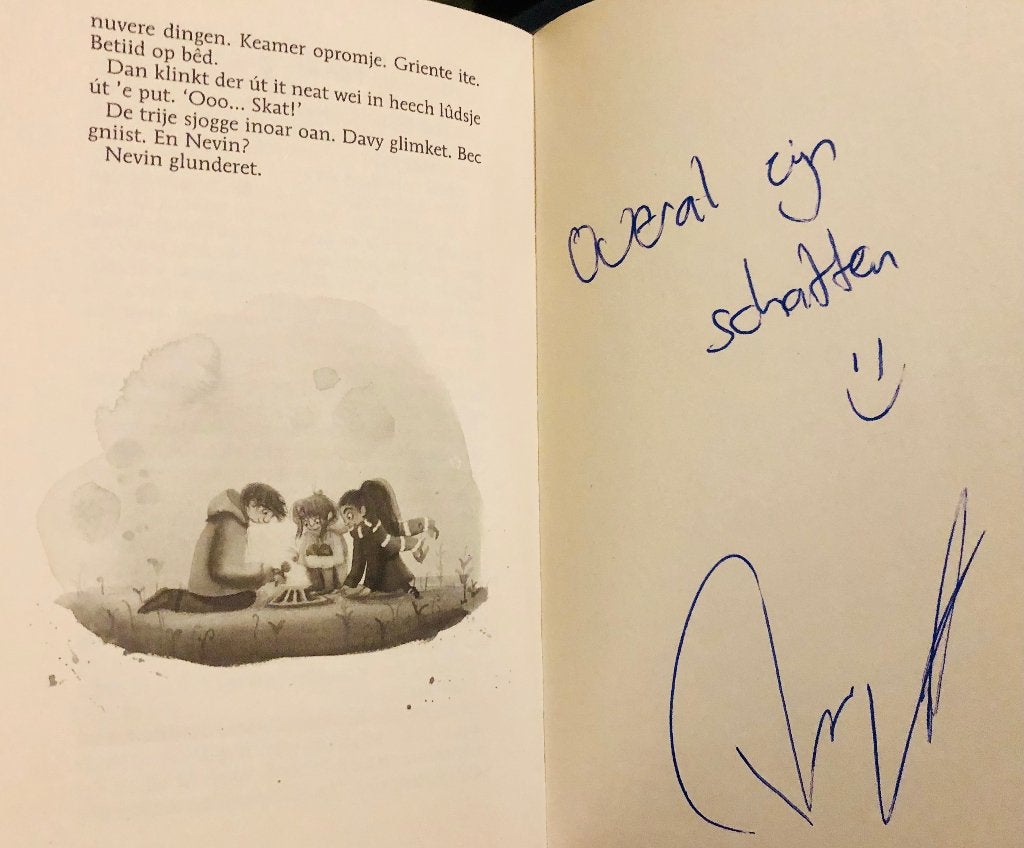 nuvere dingen. Keamer opromje. Griente ite.
Betiid op bêd.
Dan klinkt der út it neat wei in heech lûdsje
út 'e put. 'Ooo... Skat!'
De trije sjogge inoar oan. Davy glimket. Bec
gniist. En Nevin?
Nevin glunderet.
Overal zijn
schatten